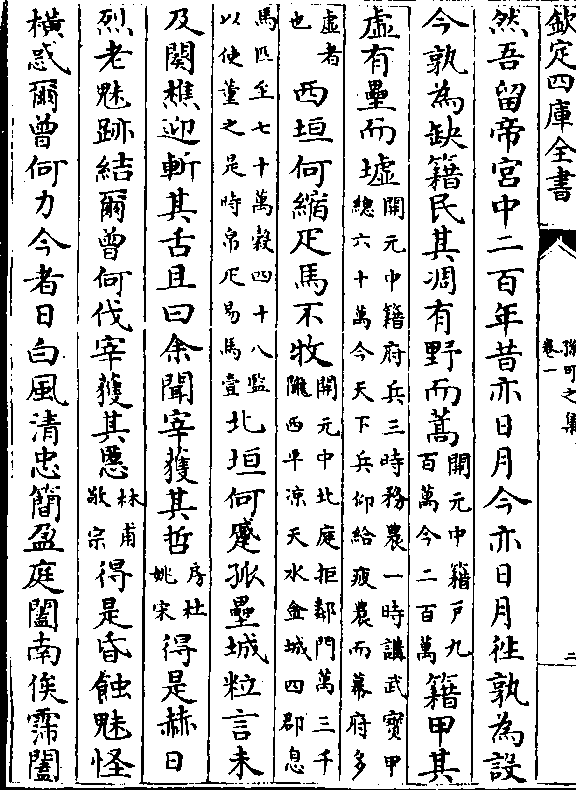 欽定四庫全書
孫可之集
卷一
二
然吾留帝宮中二百年昔亦日月今亦日月徃孰為設
今孰為缺籍民其凋有野而蒿開元中籍戸九百萬今二百萬籍甲其
虛有壘而墟開元中籍府兵三時務農一時講武寳甲總六十萬今天下兵仰給疲農而幕府多
虛者也西垣何縮疋馬不牧開元中北庭拒鄯門萬三千隴西平凉天水金城四郡息
馬匹至七十萬榖四十八監以使董之是時帛疋易馬壹北垣何蹙孤壘城粒言未
及闋樵迎斬其舌且曰余聞宰獲其哲房杜姚宋得是赫日
烈老魅跡結爾曾何伐宰獲其慝林甫敬宗得是昏蝕魅怪
橫惑爾曾何力今者日白風清忠簡盈庭闔南俟霈闔